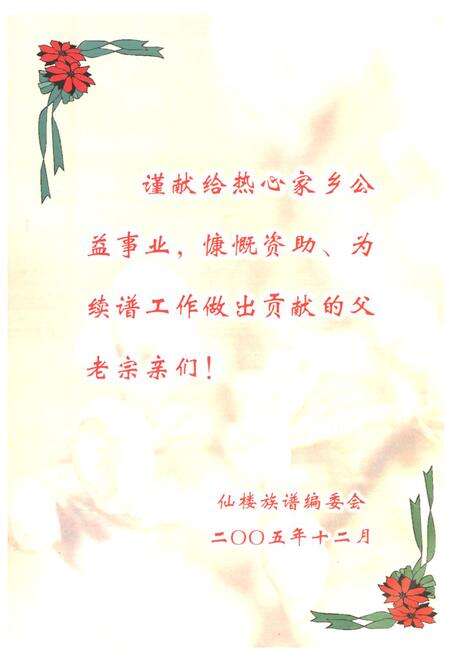 谨献给热心家乡公
益事业，慷慨资助、为
续谱工作做出贡献的父
老宗亲们！
仙楼族谱编委会
二〇〇五年十二月